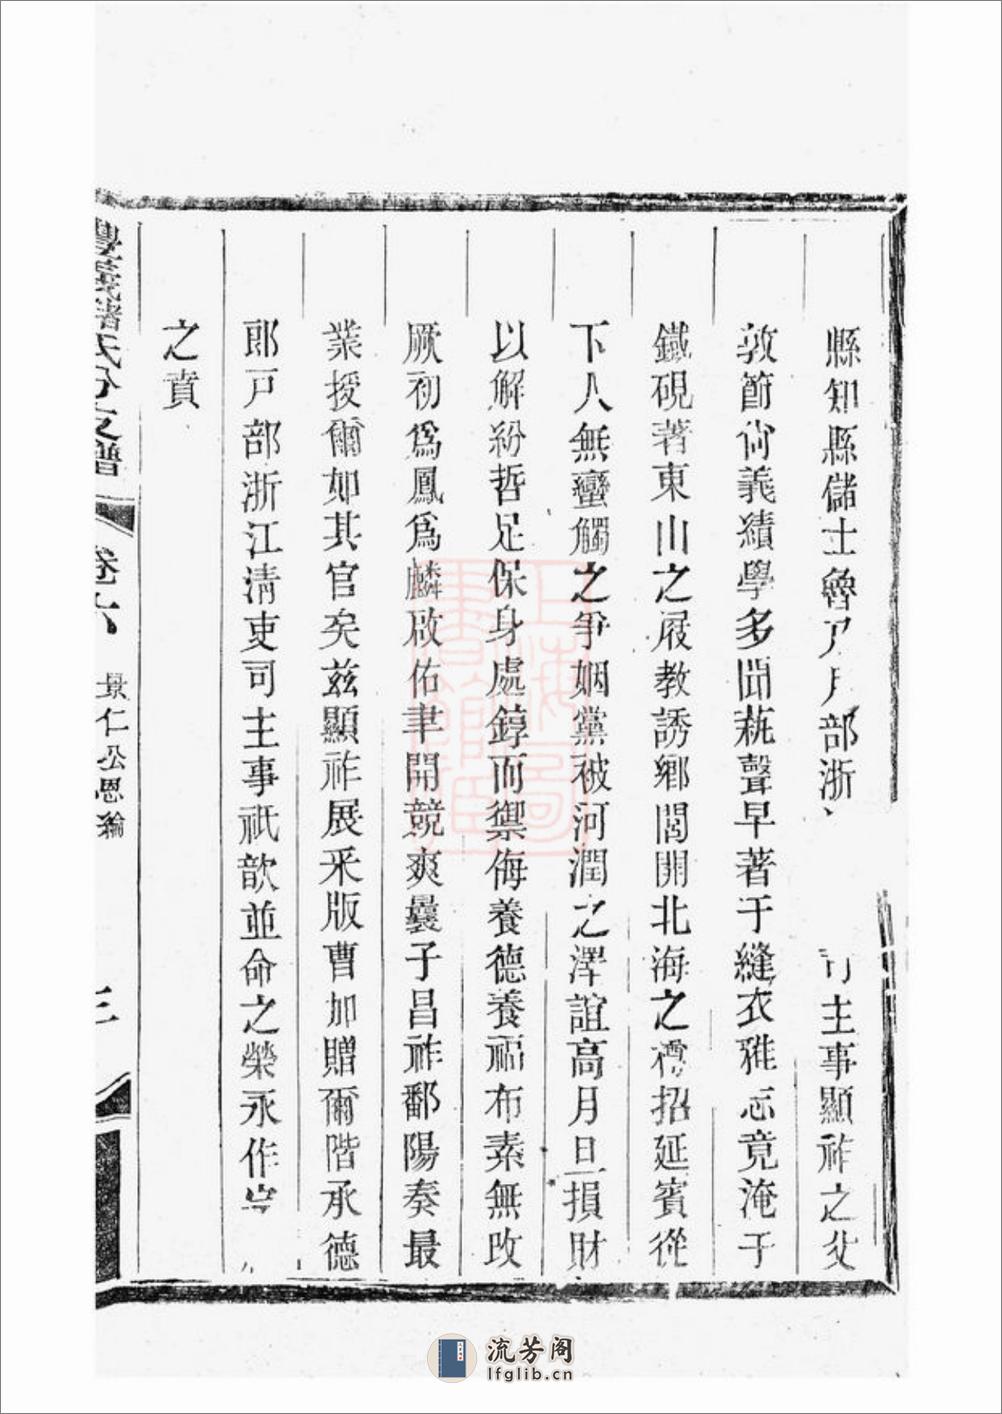 縣知縣儲士魯乃戶部浙江 司主事顯祚之父
敦節尙義績學多聞蓺聲早著于縫衣雅志竟淹于
鐵硯著東山之屐教誘鄉閭開北海之樽招延賓從
下人無蠻觸之爭姻黨被河潤之澤誼高月旦損財
以解紛哲足保身處錞而禦侮養德養福布素無改
厥初爲鳳爲麟啟佑聿開競爽曩子昌祚鄱陽奏最
業授爾如其官矣茲顯祚展采版曹加贈爾階承德
郎戸部浙江清吏司主事祇歆並命之榮永作
之賁
豐義儲氏分支譜
卷六
景仁公恩綸
三
上海圖書館藏
流芳阁
lfglib.cn